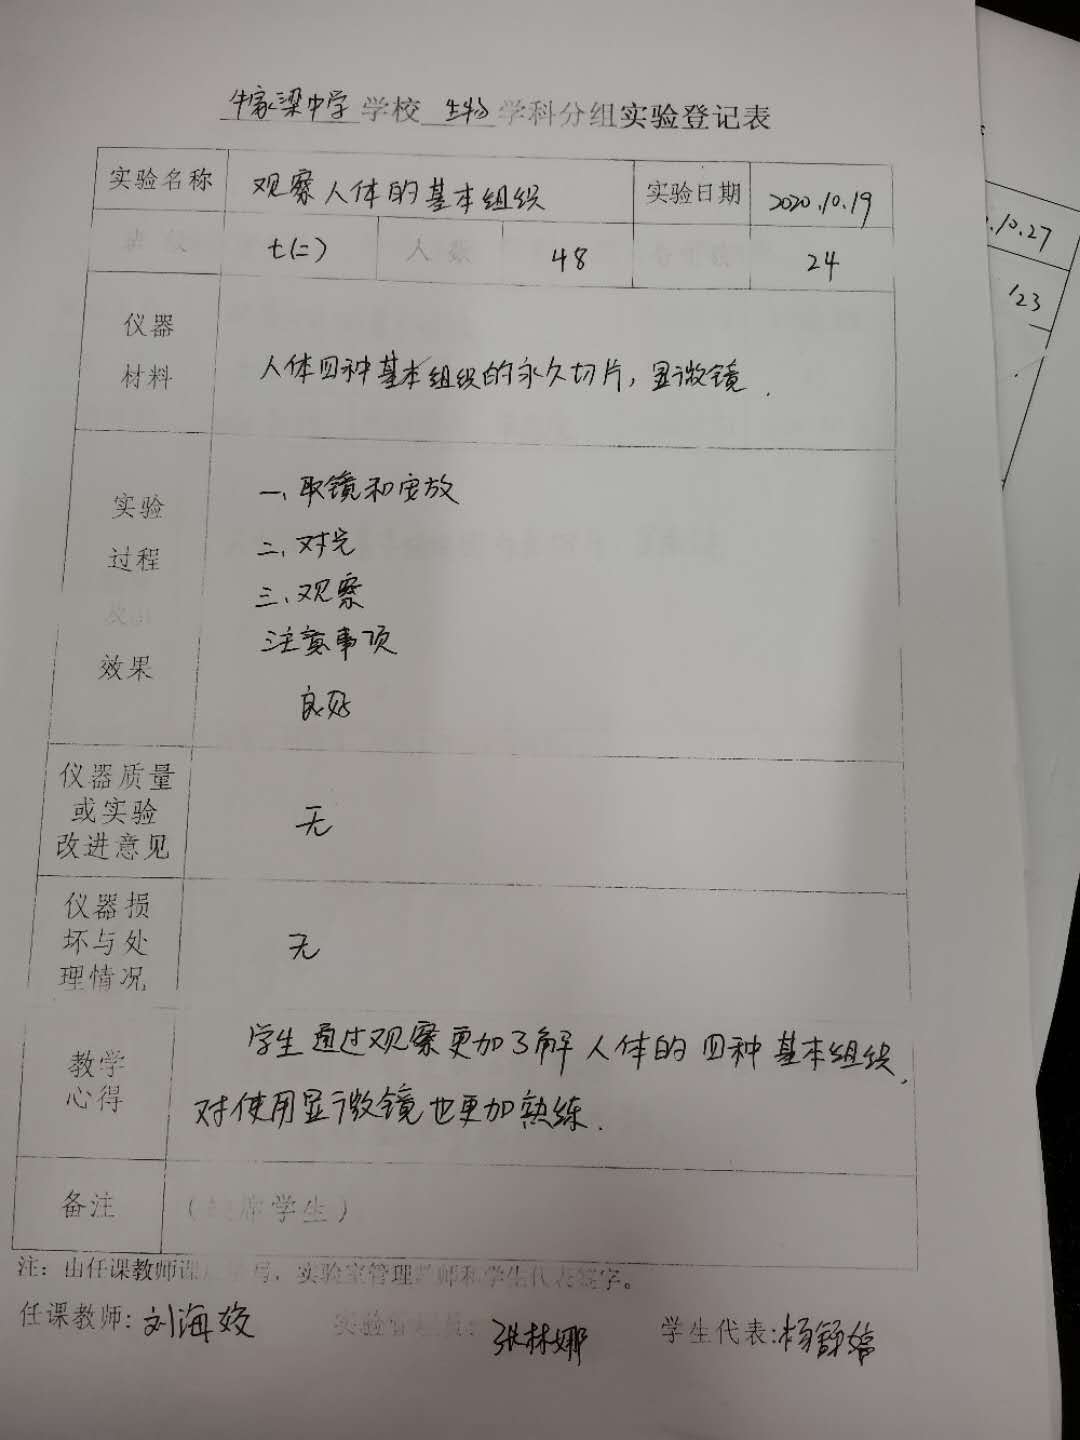 牛家梁中学 学校 生物 学科分组实验登记表
实验名称 观察人体的基本组织 实验日期 2020.10.19
班级 七(二) 人数 48 24
仪器
材料
人体四种基本组织的永久切片，显微镜.
实验
过程
效果
一、取镜和安放
二、对光
三、观察
注意事项
良好
仪器质量
或实验
改进意见
无
仪器损
坏与处
理情况
无
教学
心得
学生通过观察更加了解人体的四种基本组织,
对使用显微镜也更加熟练.
备注 (缺席学生)
注：由任课教师课后填写，实验室管理教师和学生代表签字。
任课教师: 刘海姣 实验管理员: 张林娜 学生代表: 杨舒婷
.10.27
123